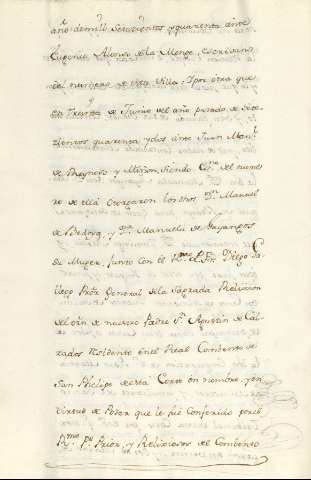 año de mill Setecientos y quarenta ante
Eugenio Alonso de la Monge, Escribano
del numero de esta Villa; Y por otra que
en treynta de Junio del año pasado de sete
zientos quarenta y dos ante Juan Manl.
de Reynoso y Miñon, siendo Essno. del nume
ro de ella otorgaron los dhos Dn. Manuel
de Bedoya, y Da. Manuela de
su Muger, junto con el Rmo. P. Fr. Diego Ga
llego Prôr General de la Sagrada Relixion
del orñ de nuestro Padre Sn. Agustin de Cal
zados Residente en el Real Combento de
San Phelipe de esta Corte en nombre, y en
virtud de Poder que le fue Conferido por el
Rmo. Pe. Prior, y Relixiosos del Combento